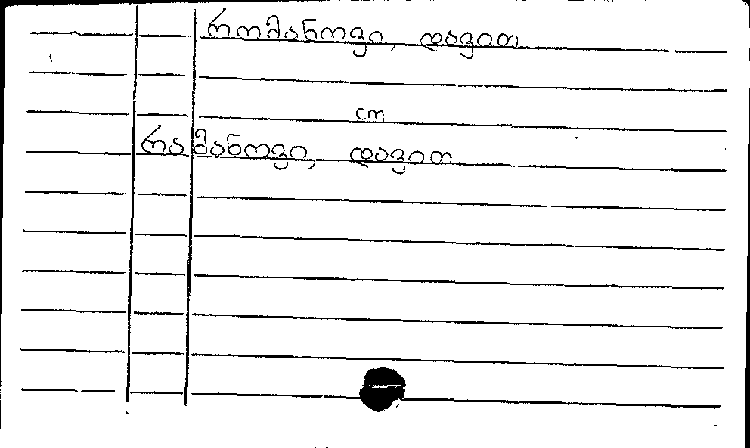 რომანოვი, დავით
იხ
რამანოვი, დავით